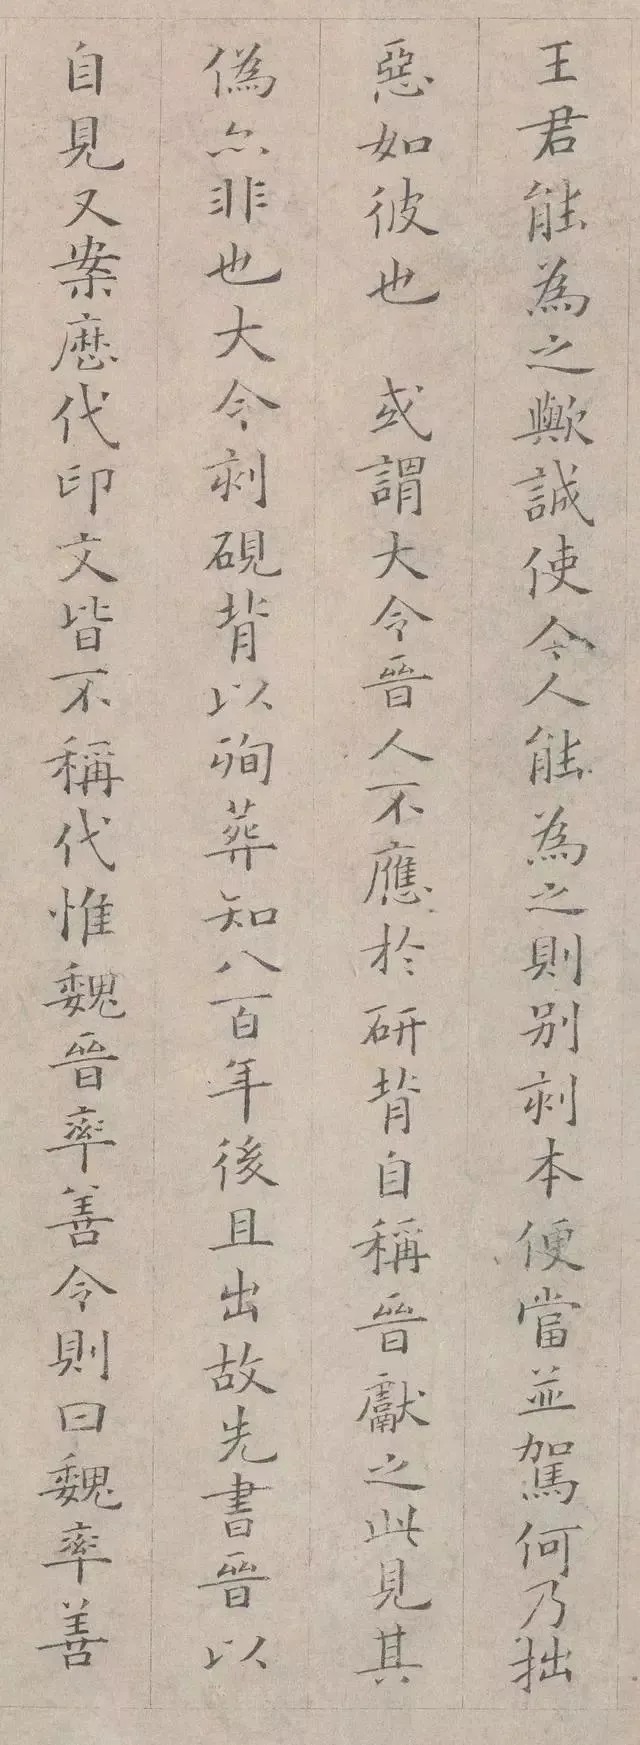 王君能為之歟誠使今人能為之則别刻本便當並駕何乃拙
惡如彼也 或謂大令晉人不應於研背自稱晉獻之此見其
偽亦非也大令刻硯背以殉葬知八百年後且出故先書晉以
自見又案歷代印文皆不稱代惟魏晉率善令則曰魏率善